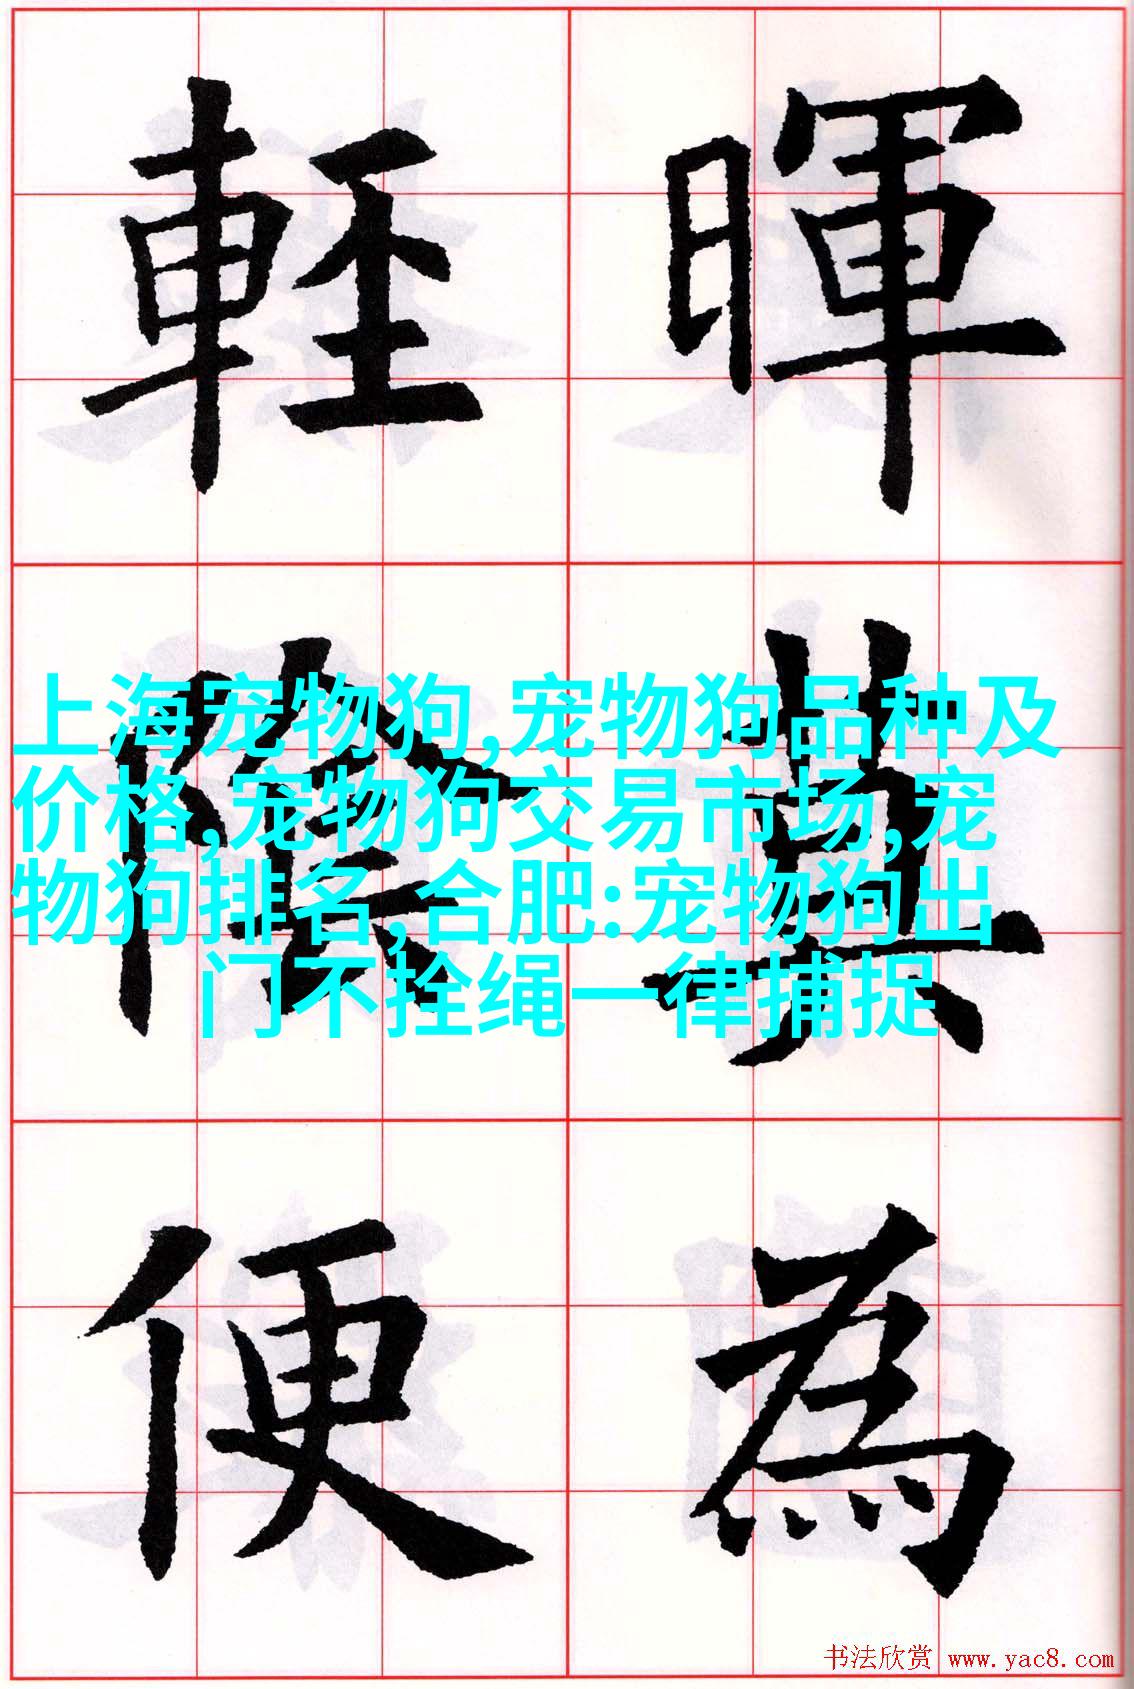 暉莫為
輕陰便
上海宠物狗,宠物狗品种及
价格,宠物狗交易市场,宠
物狗排名,合肥:宠物狗出
门不拴绳一律捕捉
书法欣赏 www.yac8.com